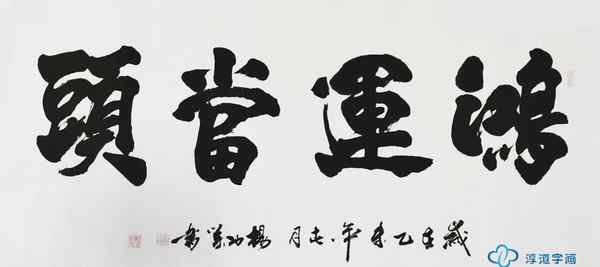 鴻運當頭
歲在乙未年月楊書
淳道字画